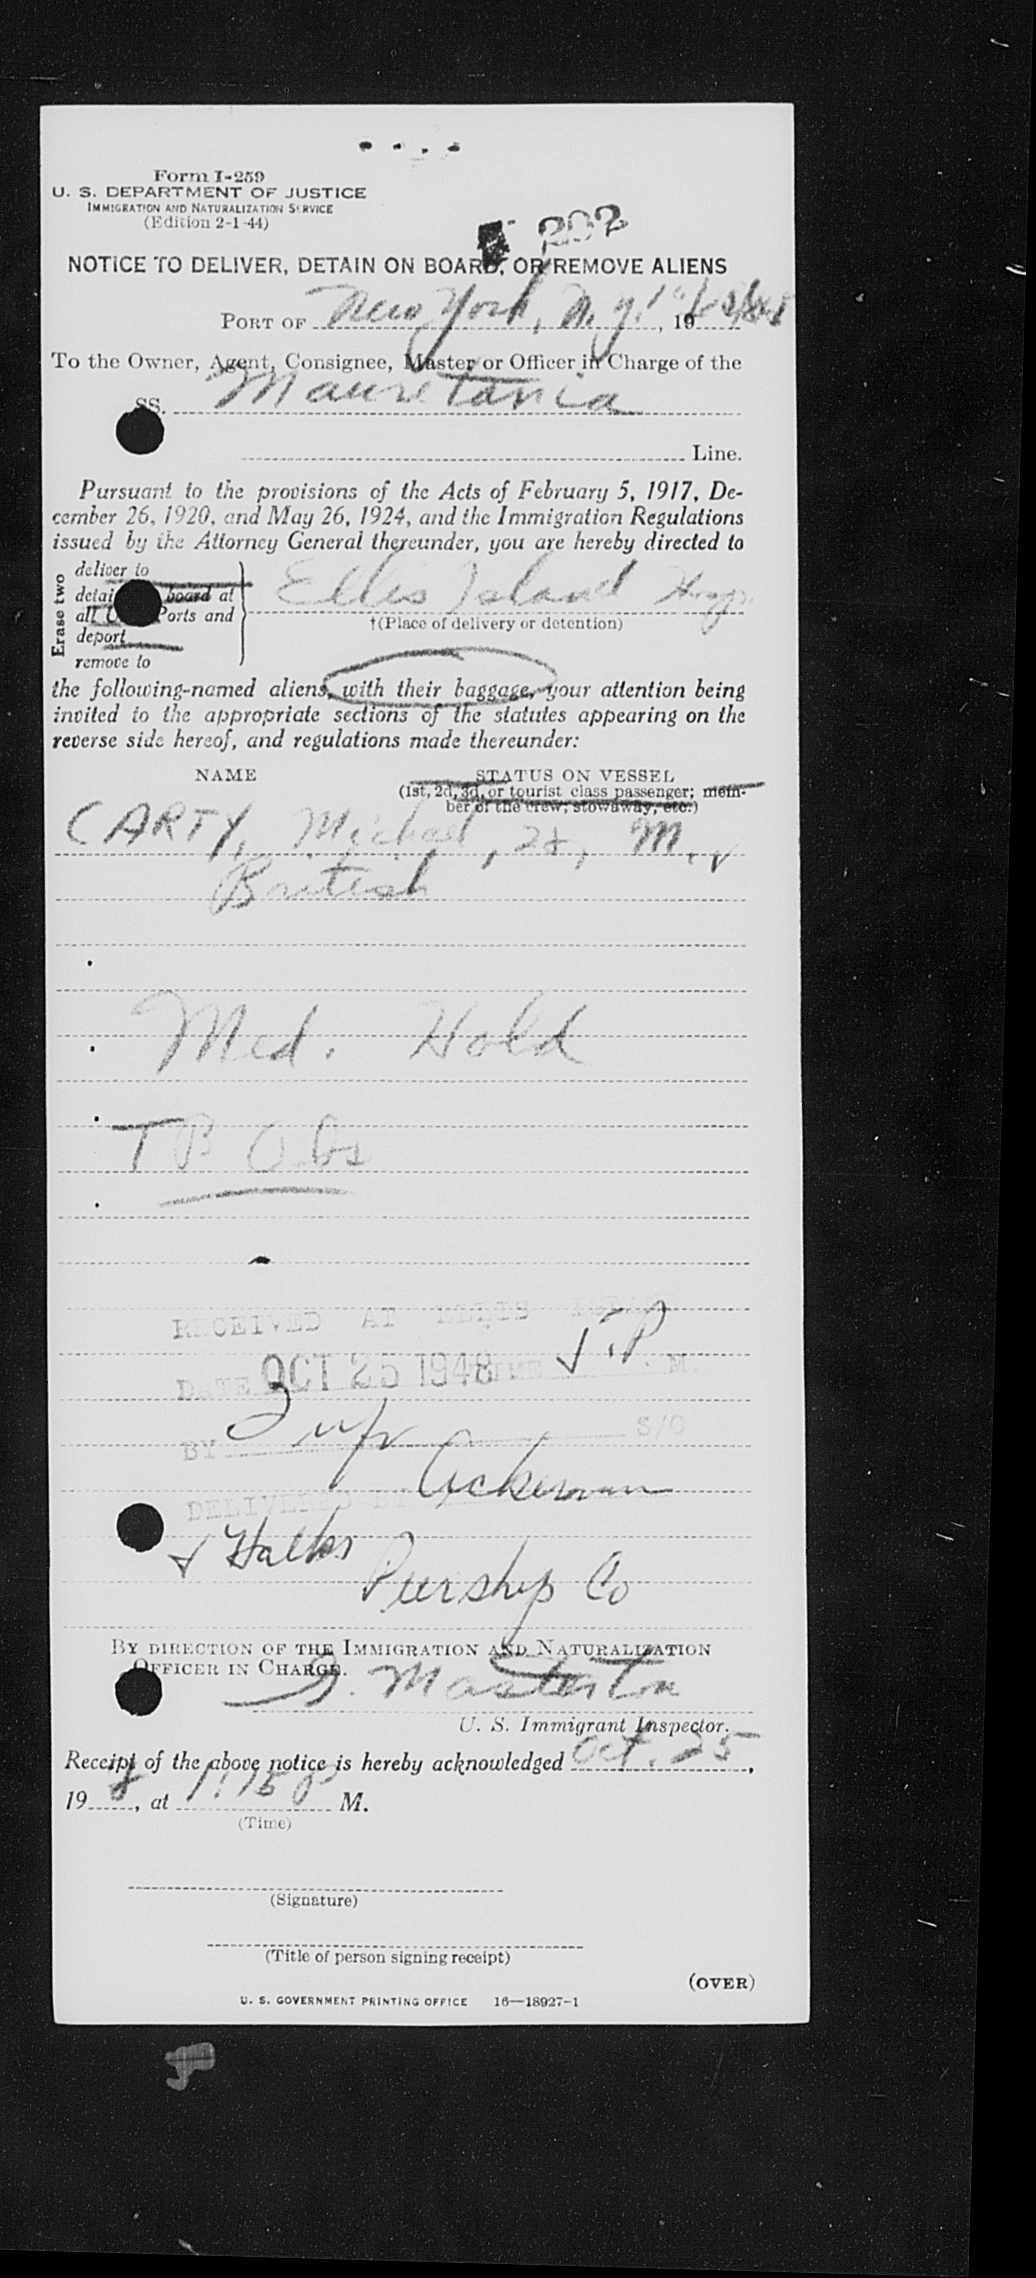 Form I-259
U. S. DEPARTMENT OF JUSTICE
IMMIGRATION AND NATURALIZATION SERVICE
(Edition 2-1-44)
202
NOTICE TO DELIVER, DETAIN ON BOARD, OR REMOVE ALIENS
PORT OF New York, N.Y., 19
To the Owner, Agent, Consignee, Master or Officer in Charge of the
SS. Mauretania
Line.
Pursuant to the provisions of the Acts of February 5, 1917, De-
cember 26, 1920, and May 26, 1924, and the Immigration Regulations
issued by the Attorney General thereunder, you are hereby directed to
Erase two
deliver to
board at
all Ports and
deport
remove to
Ellis Island
†(Place of delivery or detention)
the following-named aliens, with their baggage, your attention being
invited to the appropriate sections of the statutes appearing on the
reverse side hereof, and regulations made thereunder:
NAME STATUS ON VESSEL
(1st, 2d, 3d, or tourist class passenger; mem-
ber of the crew; stowaway, etc.)
CARTY, Michael, M.
British
Med. Hold
TB Obs
RECEIVED AT ELLIS
DATE OCT 25 1948 M.
BY S/O
Ackerman
DELIVERED
By DIRECTION OF THE IMMIGRATION AND NATURALIZATION
OFFICER IN CHARGE.
Masterton
U. S. Immigrant Inspector.
Receipt of the above notice is hereby acknowledged Oct. 25,
19 8, at 1:15 P M.
(Time)
(Signature)
(Title of person signing receipt)
(OVER)
U. S. GOVERNMENT PRINTING OFFICE 16—18927-1